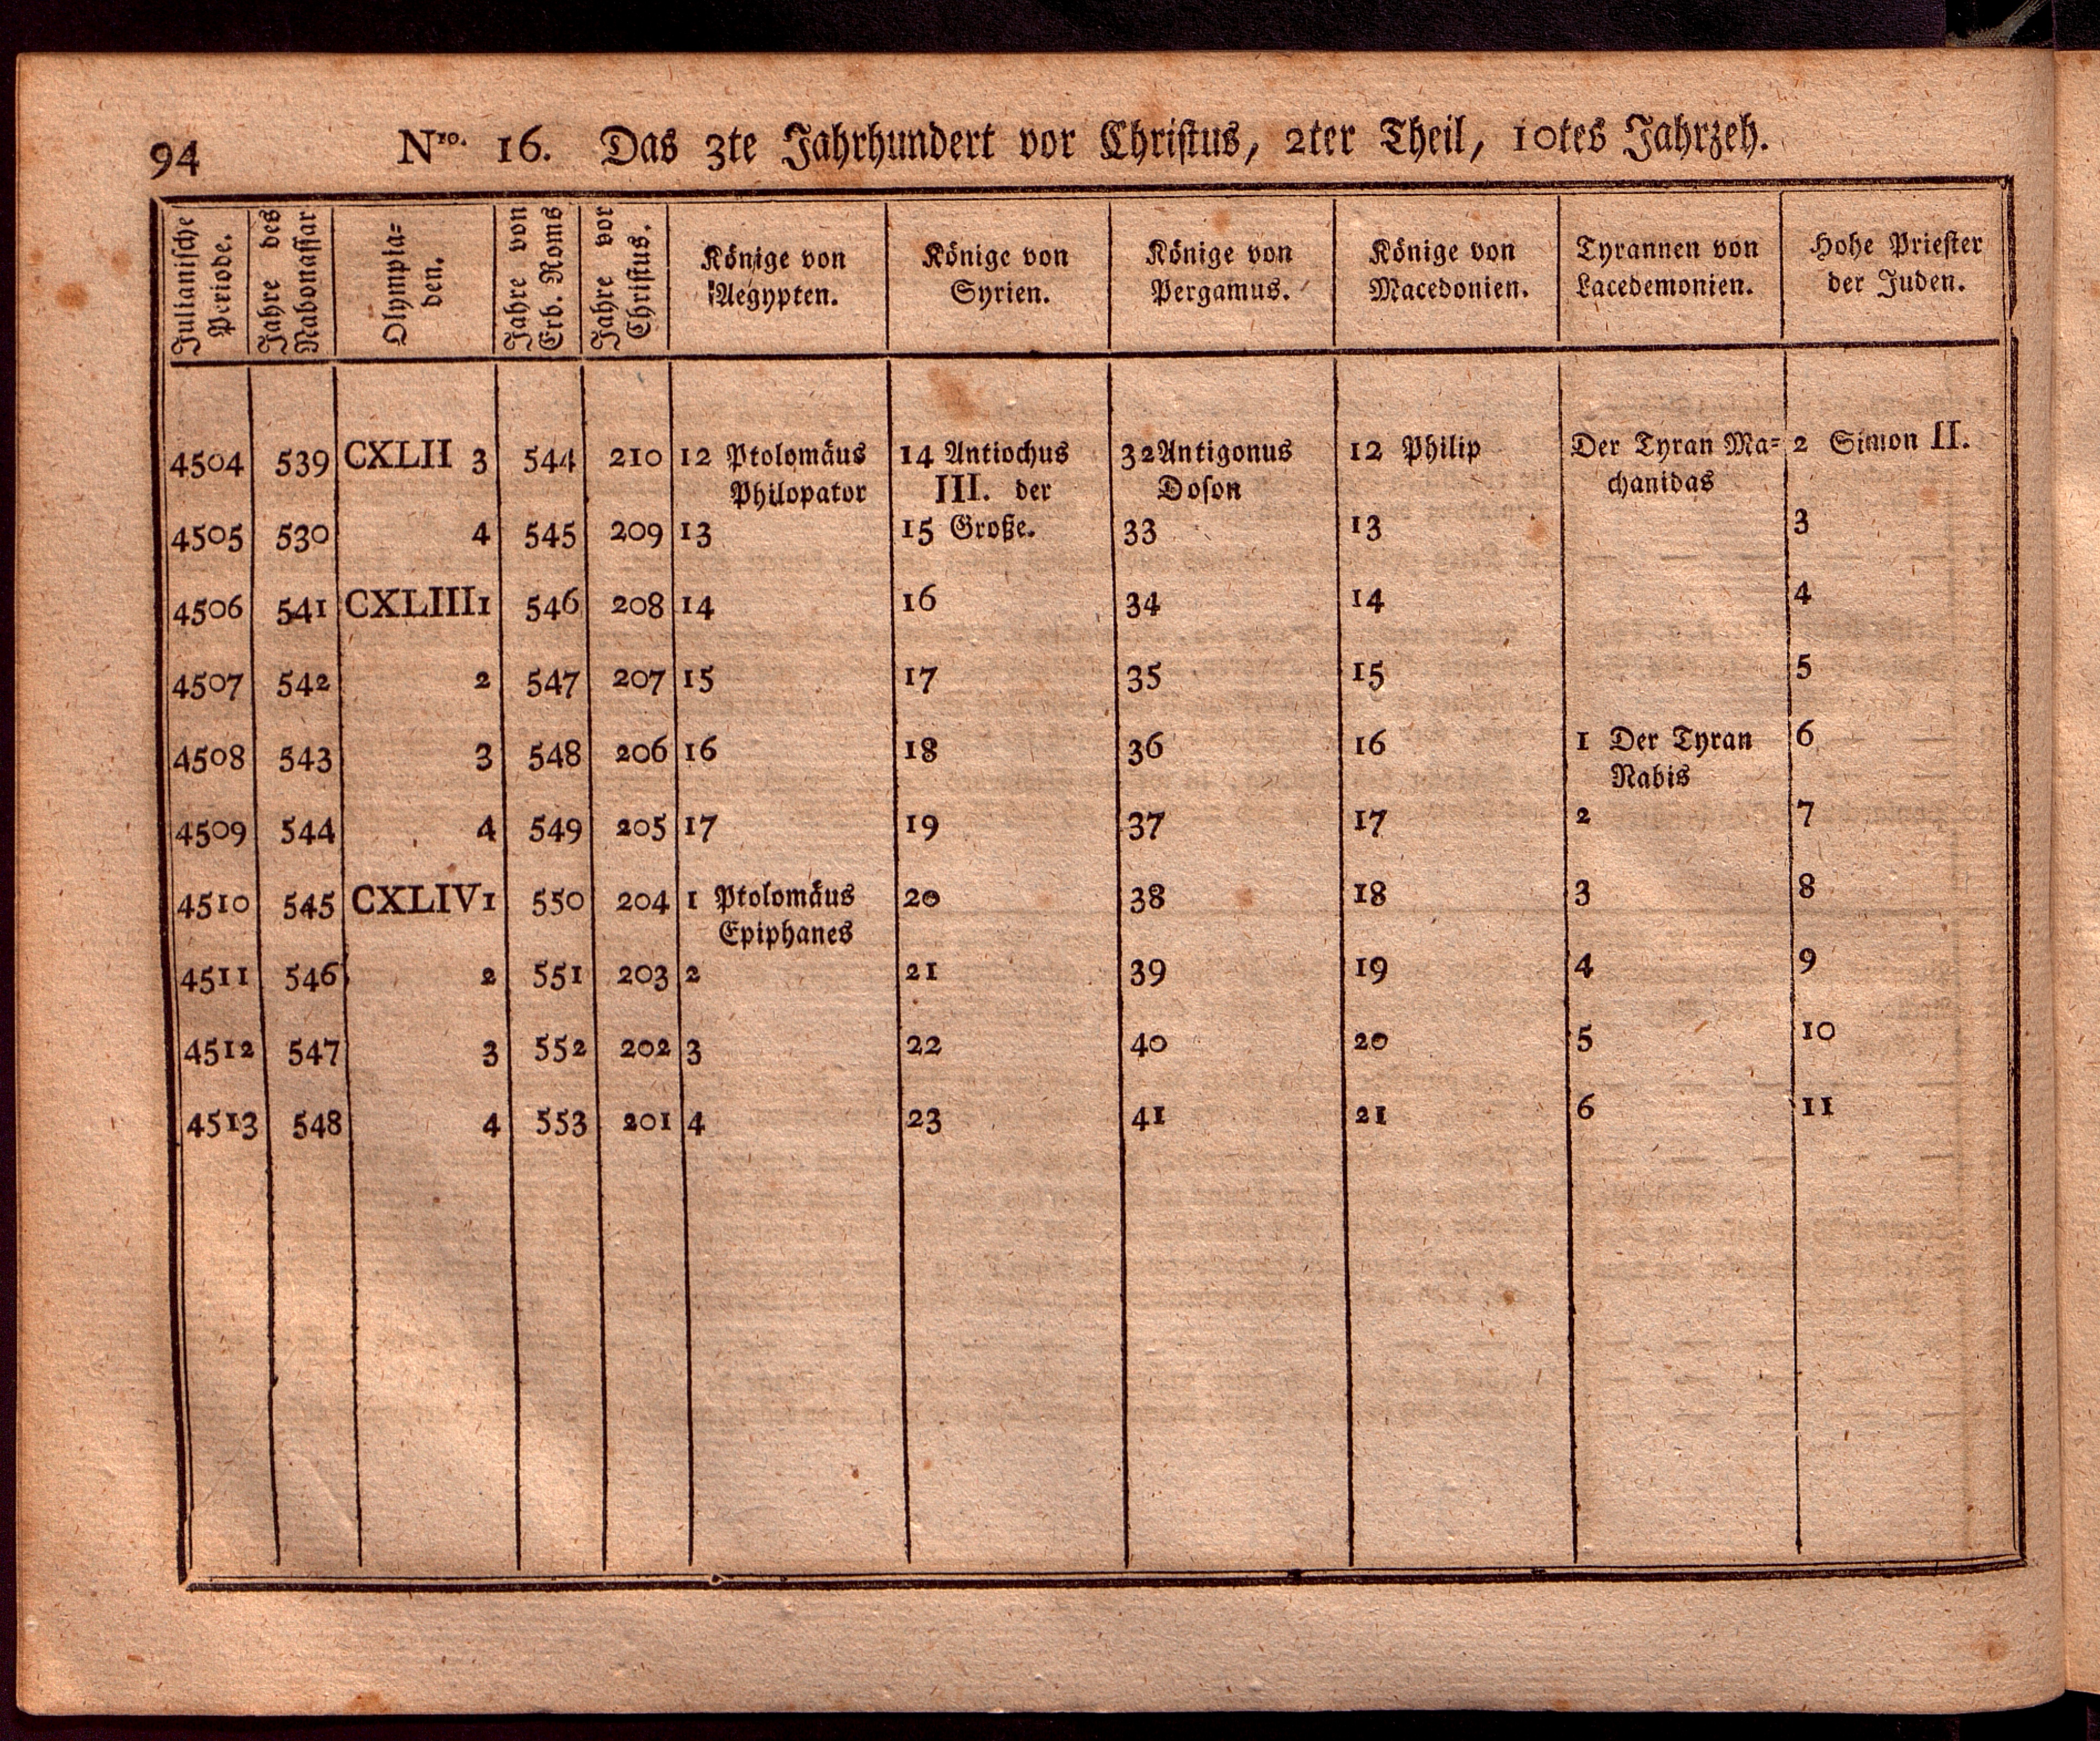 94 Nro. 16. Das 3te Jahrhundert vor Christus, 2ter Theil, 10tes Jahrzeh.
Julianische Periode.
Jahre des Nabonassar
Olympia= den.
Jahre von Erb. Roms
Jahre vor Christus.
Könige von Aegypten.
Könige von Syrien.
Könige von Pergamus.
Könige von Macedonien.
Tyrannen von Lacedemonien.
Hohe Priester der Juden.
4504 539 CXLII 3 544 210 12 Ptolomäus 14 Antiochus 32 Antigonus 12 Philip Der Tyran Ma= 2 Simon II.
Philopator III. der Doson chanidas
4505 530 4 545 209 13 15 Große. 33 13 3
4506 541 CXLIII 1 546 208 14 16 34 14 4
4507 542 2 547 207 15 17 35 15 5
4508 543 3 548 206 16 18 36 16 1 Der Tyran 6
Nabis
4509 544 4 549 205 17 19 37 17 2 7
4510 545 CXLIV 1 550 204 1 Ptolomäus 20 38 18 3 8
Epiphanes
4511 546 2 551 203 2 21 39 19 4 9
4512 547 3 552 202 3 22 40 20 5 10
4513 548 4 553 201 4 23 41 21 6 11